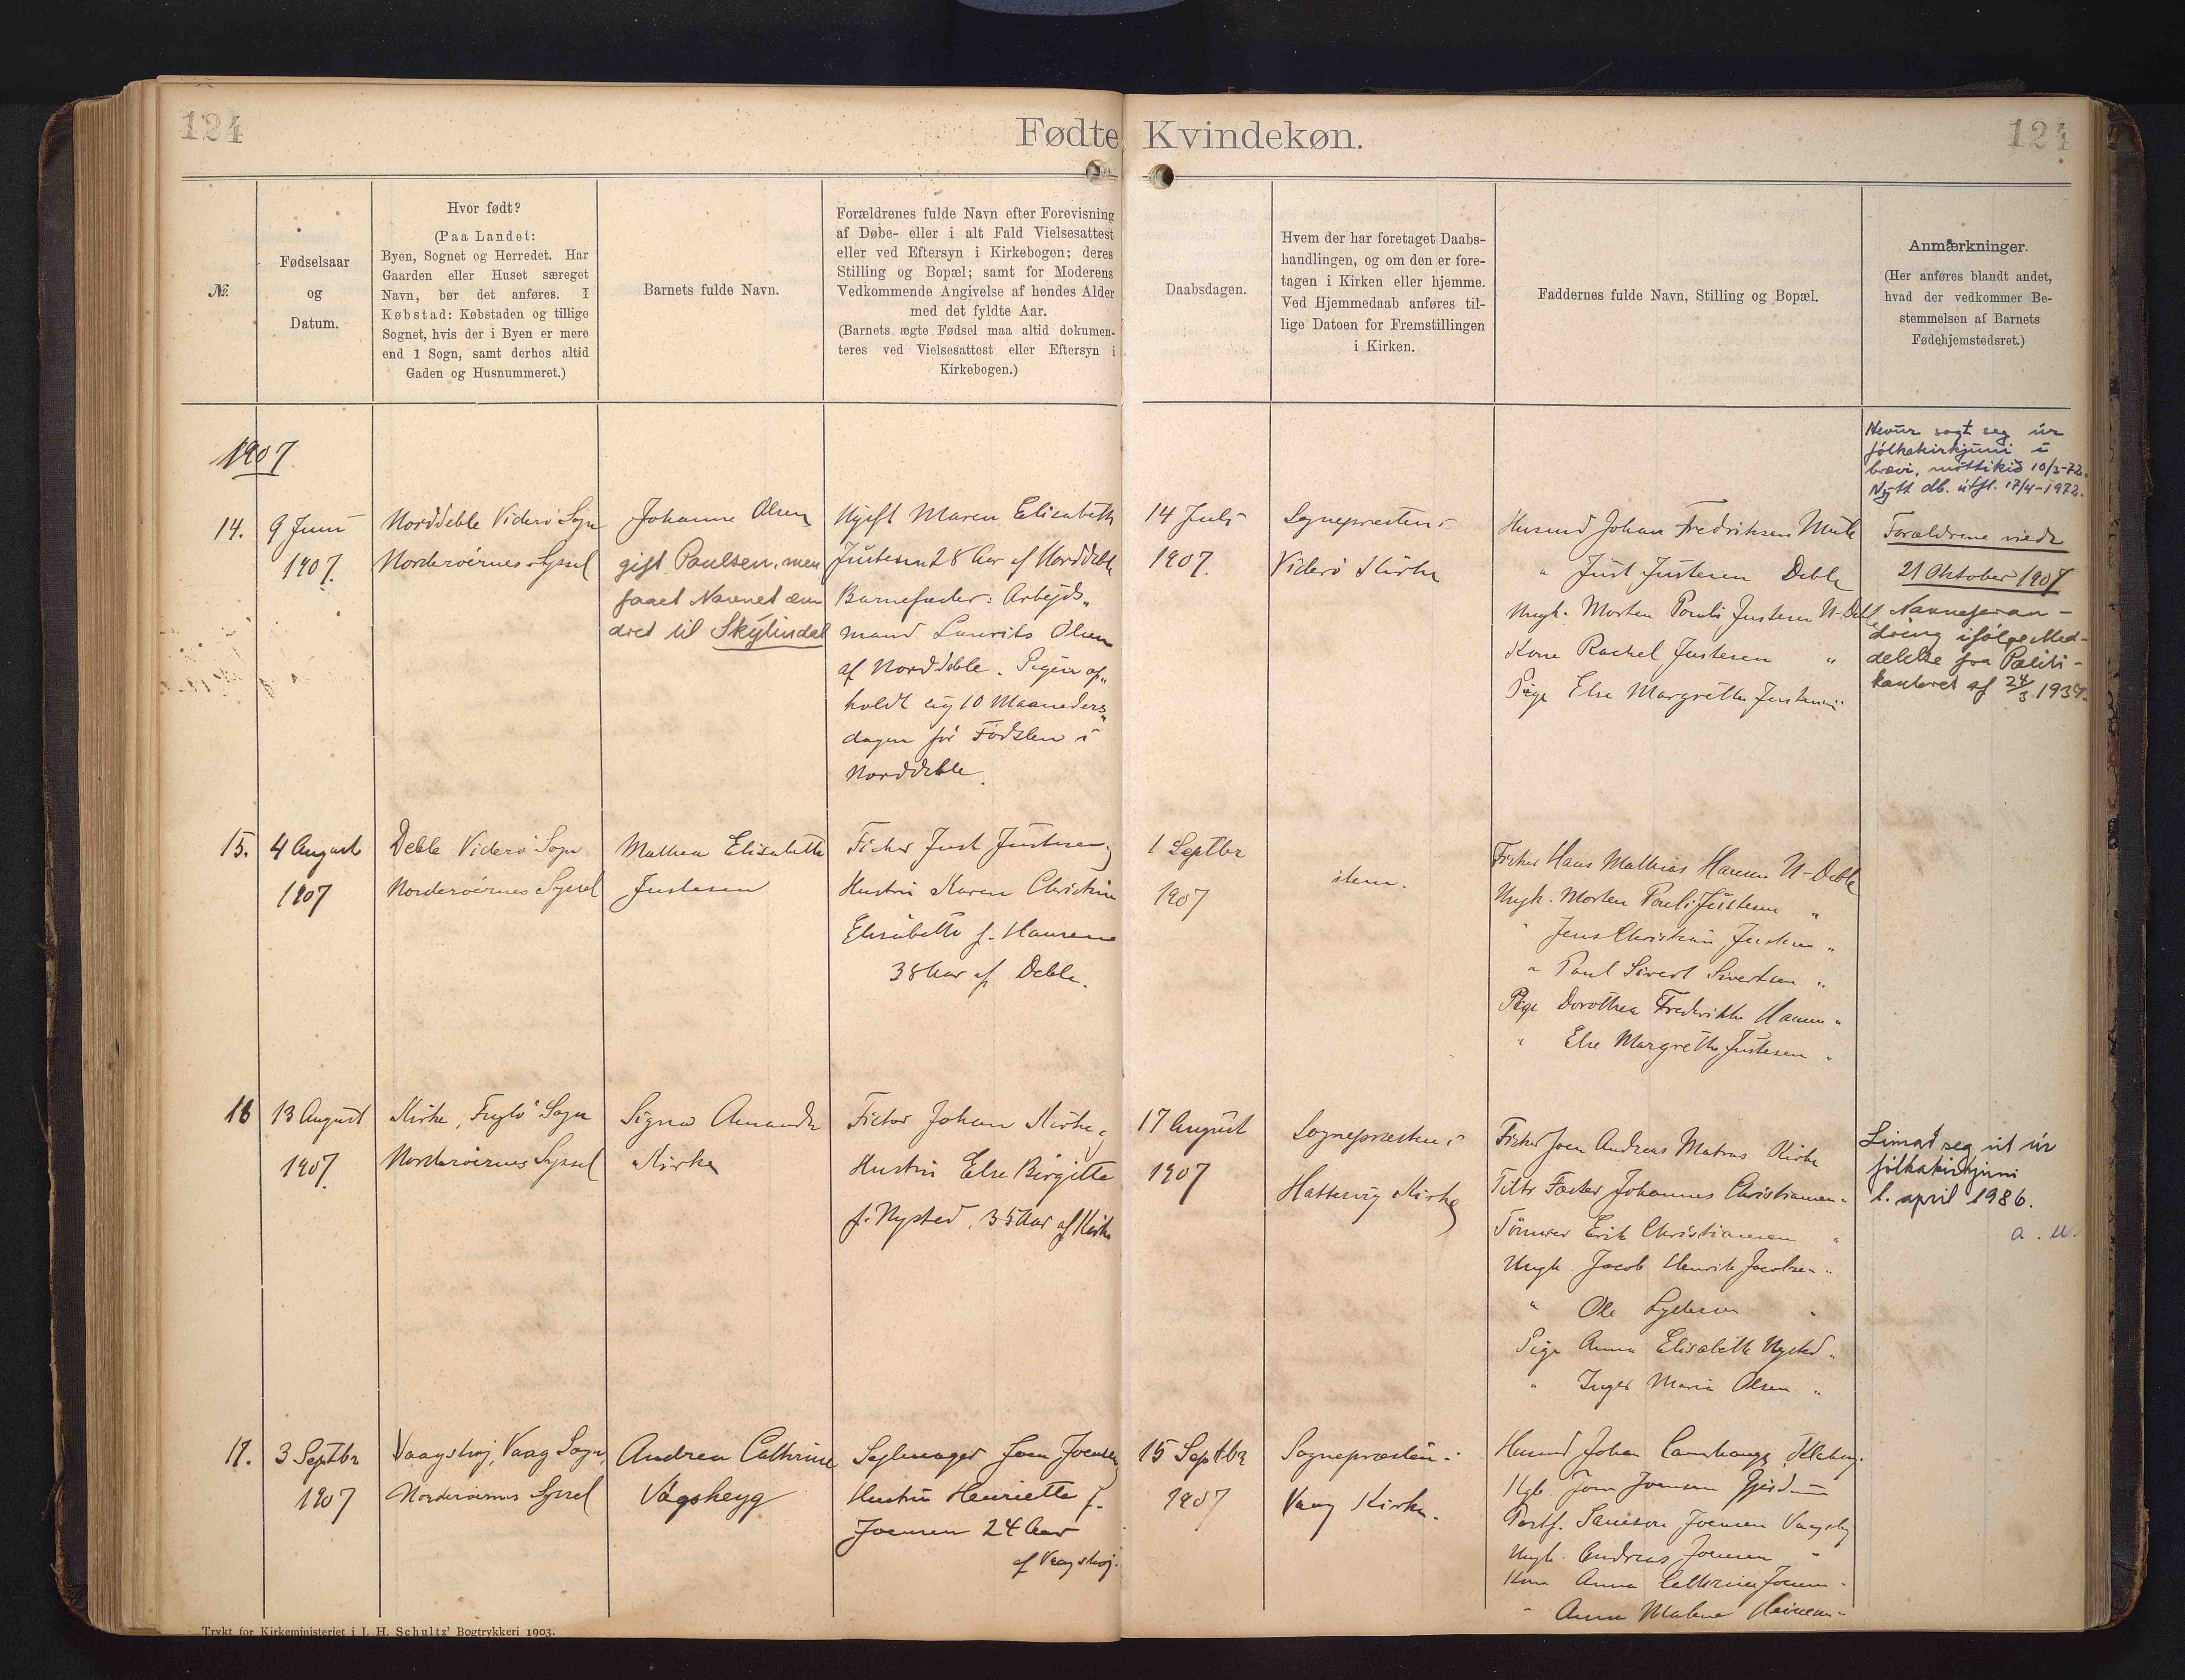 124
Fødte Kvindekøn.
124
№
Fødselsaar
og
Datum.
Hvor født?
(Paa Landet:
Byen, Sognet og Herredet. Har
Gaarden eller Huset særeget
Navn, bør det anføres. I
Købstad: Købstaden og tillige
Sognet, hvis der i Byen er mere
end 1 Sogn, samt derhos altid
Gaden og Husnummeret.)
Barnets fulde Navn.
Forældrenes fulde Navn efter Forevisning
af Døbe- eller i alt Fald Vielsesattest
eller ved Eftersyn i Kirkebogen; deres
Stilling og Bopæl; samt for Moderens
Vedkommende Angivelse af hendes Alder
med det fyldte Aar.
(Barnets ægte Fødsel maa altid dokumen-
teres ved Vielsesattest eller Eftersyn i
Kirkebogen.)
Daabsdagen.
Hvem der har foretaget Daabs-
handlingen, og om den er fore-
tagen i Kirken eller hjemme.
Ved Hjemmedaab anføres til-
lige Datoen for Fremstillingen
i Kirken.
Faddernes fulde Navn, Stilling og Bopæl.
Anmærkninger.
(Her anføres blandt andet,
hvad der vedkommer Be-
stemmelsen af Barnets
Fødehjemstedsret.)
1907
14.
9 Juni
1907.
Norddeble Viderø Sogn
Norderøernes Syssel
Johanne Olsen
gift Paulsen, men
faaet Navnet æn
dret til Skylindal
Ugift Maren Elisabeth
Justesen 28 Aar af Norddeble
Barnefader: Arbejds„
mand Laurits Olsen
af Norddeble. Pigen op„
holdt sig 10 Maaneders„
dagen før Fødslen i
Norddeble.
14 Juli
1907.
Sognepræsten i
Viderø Kirke
Husmd Johan Fredriksen Mule
" Just Justesen Deble
Ungk. Morten Pouli Justesen N-Debl
Kone Rachel Justesen "
Pige Else Margrethe Justesen "
Hevur sagt seg úr
fólkakirkjuni í
brævi, móttikið 10/3-72.
Nýtt db. útfl. 17/4-1972.
Forældrene viede
21 Oktober 1907
Navneforan-
dring ifølge Med-
delelse fra Politi-
kontoret af 24/3 1937.
15.
4 August
1907
Deble Viderø Sogn
Norderøernes Syssel
Mathea Elisabeth
Justesen
Fisker Just Justesen og
Hustru Karen Christine
Elisabeth f. Hansen
38 Aar af Deble.
1 Septbr
1907
item.
Fisker Hans Mathias Hansen N-Deble
Ungk. Morten Pouli Justesen "
" Jens Christian Justesen "
" Poul Sivert Sivertsen "
Pige Dorothea Fredrikke Hansen "
" Else Margrethe Justesen "
16
13 August
1907.
Kirke, Fuglø Sogn
Norderøernes Syssel
Signe Amanda
Kirke
Fisker Johan Kirke og
Hustru Else Birgitte
f. Nysted. 35 Aar af Kirke
17 August
1907
Sognepræsten i
Hattervig Kirke
Fisker Joen Andreas Matras Kirke
Fæster Johannes Christiansen "
Tømrer Erik Christiansen "
Ungk. Jacob Henrik Jacobsen "
" Ole "
Pige Anna Elisabeth Nysted "
" Inger Maria Olsen "
Limað seg út úr
fólkakirkjuni
1. april 1986.
a. u.
17.
3 Septbr
1907
Vaagshøj, Vaag Sogn
Norderøernes Syssel
Andrea Cathrine
Vágsheyg
Sejlmager Joen Joensen
Hustru Henriette f.
Joensen 24 Aar
af Vaagshøj.
15 Septbr
1907
Sognepræsten i
Vaag Kirke.
Husmd Johan
Joen Joensen
Samson Joensen
Ungk. Andreas Joensen "
Kone Anna Cathrine Joensen "
" Anna Malene "
Trykt for Kirkeministeriet i J. H. Schultz' Bogtrykkeri 1903.